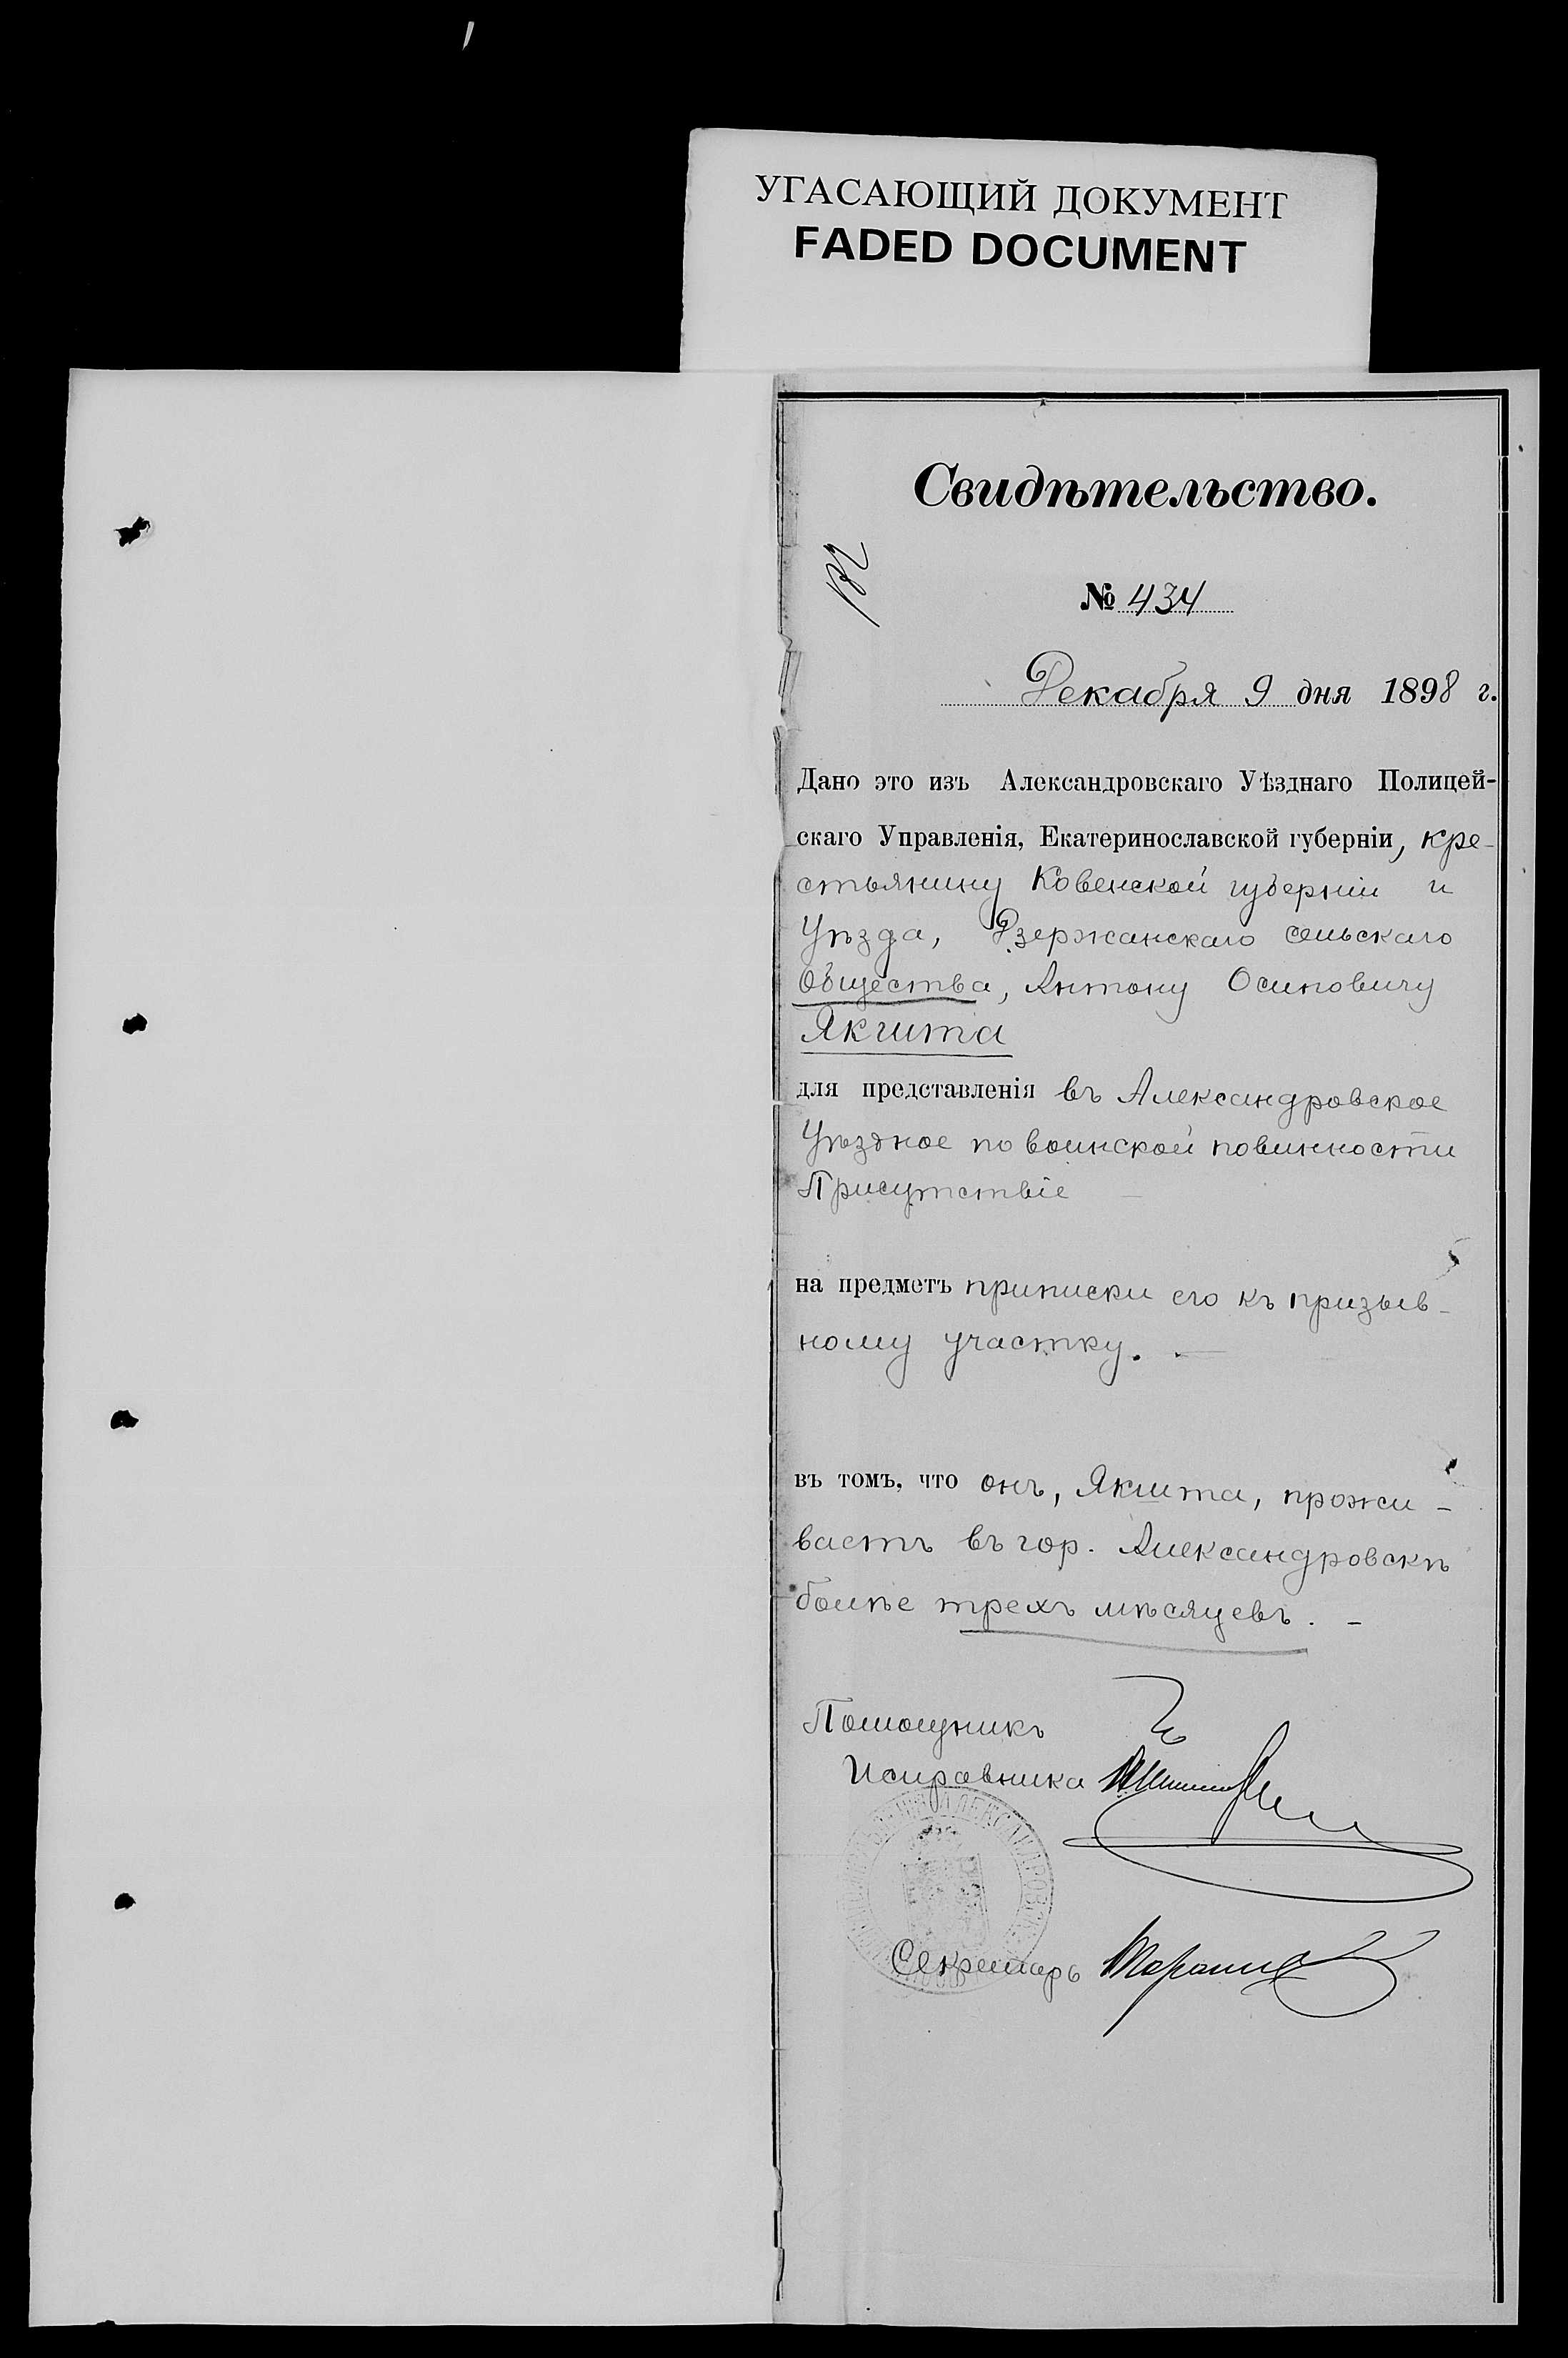 УГАСАЮЩИЙ ДОКУМЕНТ
FADED DOCUMENT
Свидѣтельство.
№ 434
Декабря 9 дня 1898 г.
Дано это изъ Александровскаго Уѣзднаго Полицей-
скаго Управленія, Екатеринославской губерніи, кре-
стьянину Ковенской губерніи и
Уѣзда, Дзержанскаго сельскаго
Общества, Антону Осиповичу
Якшта
для представленія въ Александровское
Уѣздное по воинской повинности
Присутствіе
на предметъ приписки его къ призыв-
ному участку. -
въ томъ, что онъ, Якшта, прожи-
ваетъ въ гор. Александровскѣ
болѣе трехъ мѣсяцевъ. -
Помощникъ
Исправника
Секретарь